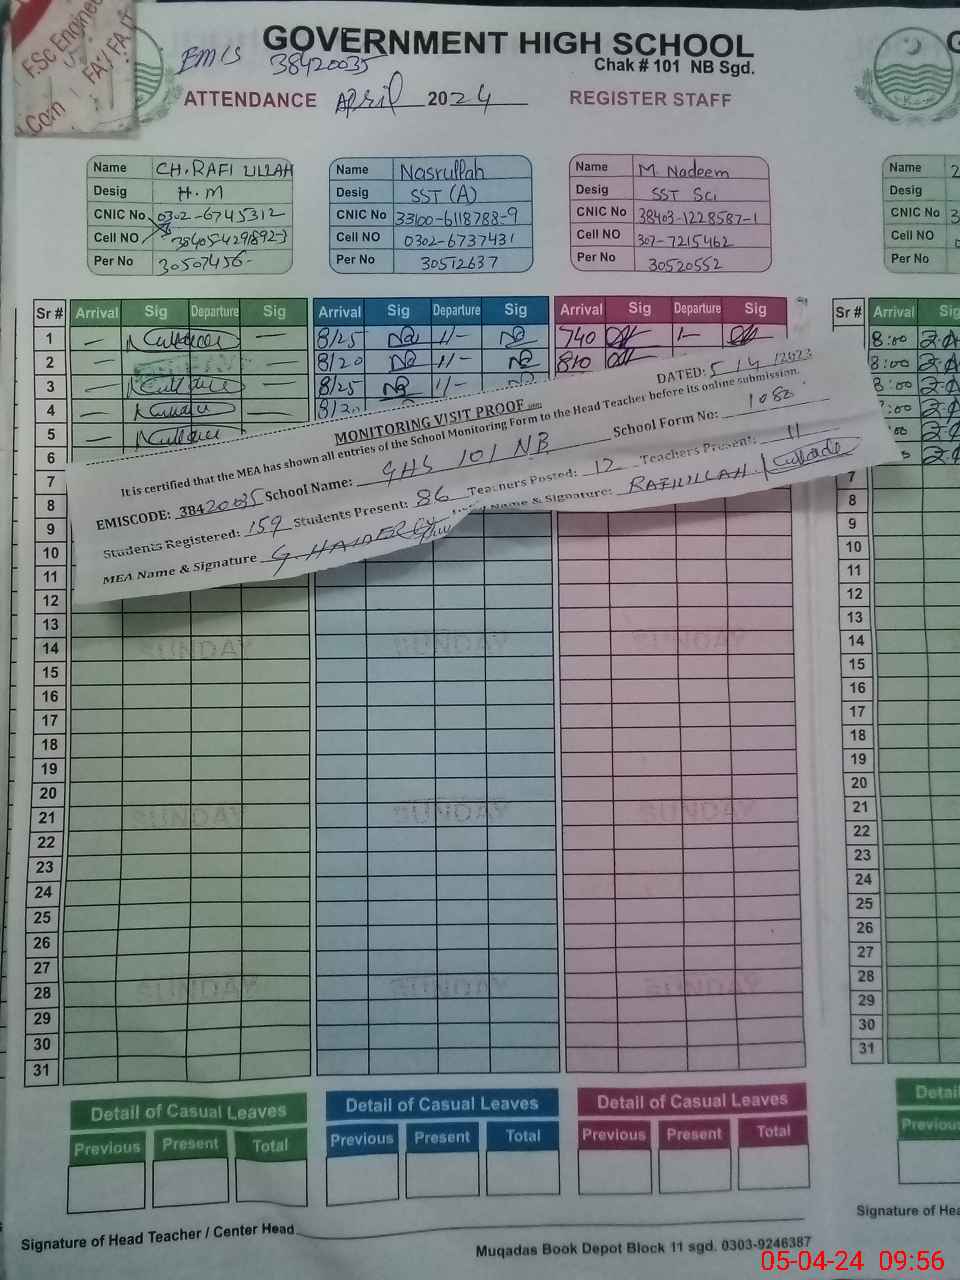 FSc Enginee
FA / FA IT
.Com
EMIS 38420035
GOVERNMENT HIGH SCHOOL
Chak # 101 NB Sgd.
ATTENDANCE April 2024 REGISTER STAFF
Name CH. RAFI ULLAH
Desig H.M
CNIC No 0302-6745312
Cell NO 38405-4291892-3
Per No 30507456
Name Nasrullah
Desig SST (A)
CNIC No 33100-6118788-9
Cell NO 0302-6737431
Per No 30512637
Name M. Nadeem
Desig SST Sci
CNIC No 38403-1228587-1
Cell NO 307-7215462
Per No 30520552
Name
Desig
CNIC No 3
Cell NO
Per No
Sr # Arrival Sig Departure Sig Arrival Sig Departure Sig Arrival Sig Departure Sig Sr # Arrival Sig
1 — — 8/25 11- 740 1- 8:00
2 — — 8/20 11- 810 8:00
3 — — 8/25 11- 8:00
4 — — 8/20 :00
5 — — :00
6
MONITORING VISIT PROOF DATED: 5/4/
It is certified that the MEA has shown all entries of the School Monitoring Form to the Head Teacher before its online submission.
EMISCODE: 38420035 School Name: GHS 101 NB School Form No: 1080
Students Registered: 159 Students Present: 86 Teachers Posted: 12 Teachers Present: 11
MEA Name & Signature G. HAIDER Name & Signature: RAFIULLAH
7 7
8 8
9 9
10 10
11 11
12 12
13 13
14 14
15 15
16 16
17 17
18 18
19 19
20 20
21 21
22 22
23 23
24 24
25 25
26 26
27 27
28 28
29 29
30 30
31 31
Detail of Casual Leaves Detail of Casual Leaves Detail of Casual Leaves Detail
Previous Present Total Previous Present Total Previous Present Total Previous
Signature of Head Teacher / Center Head
Signature of Hea
Muqadas Book Depot Block 11 sgd. 0303-9246387
05-04-24 09:56